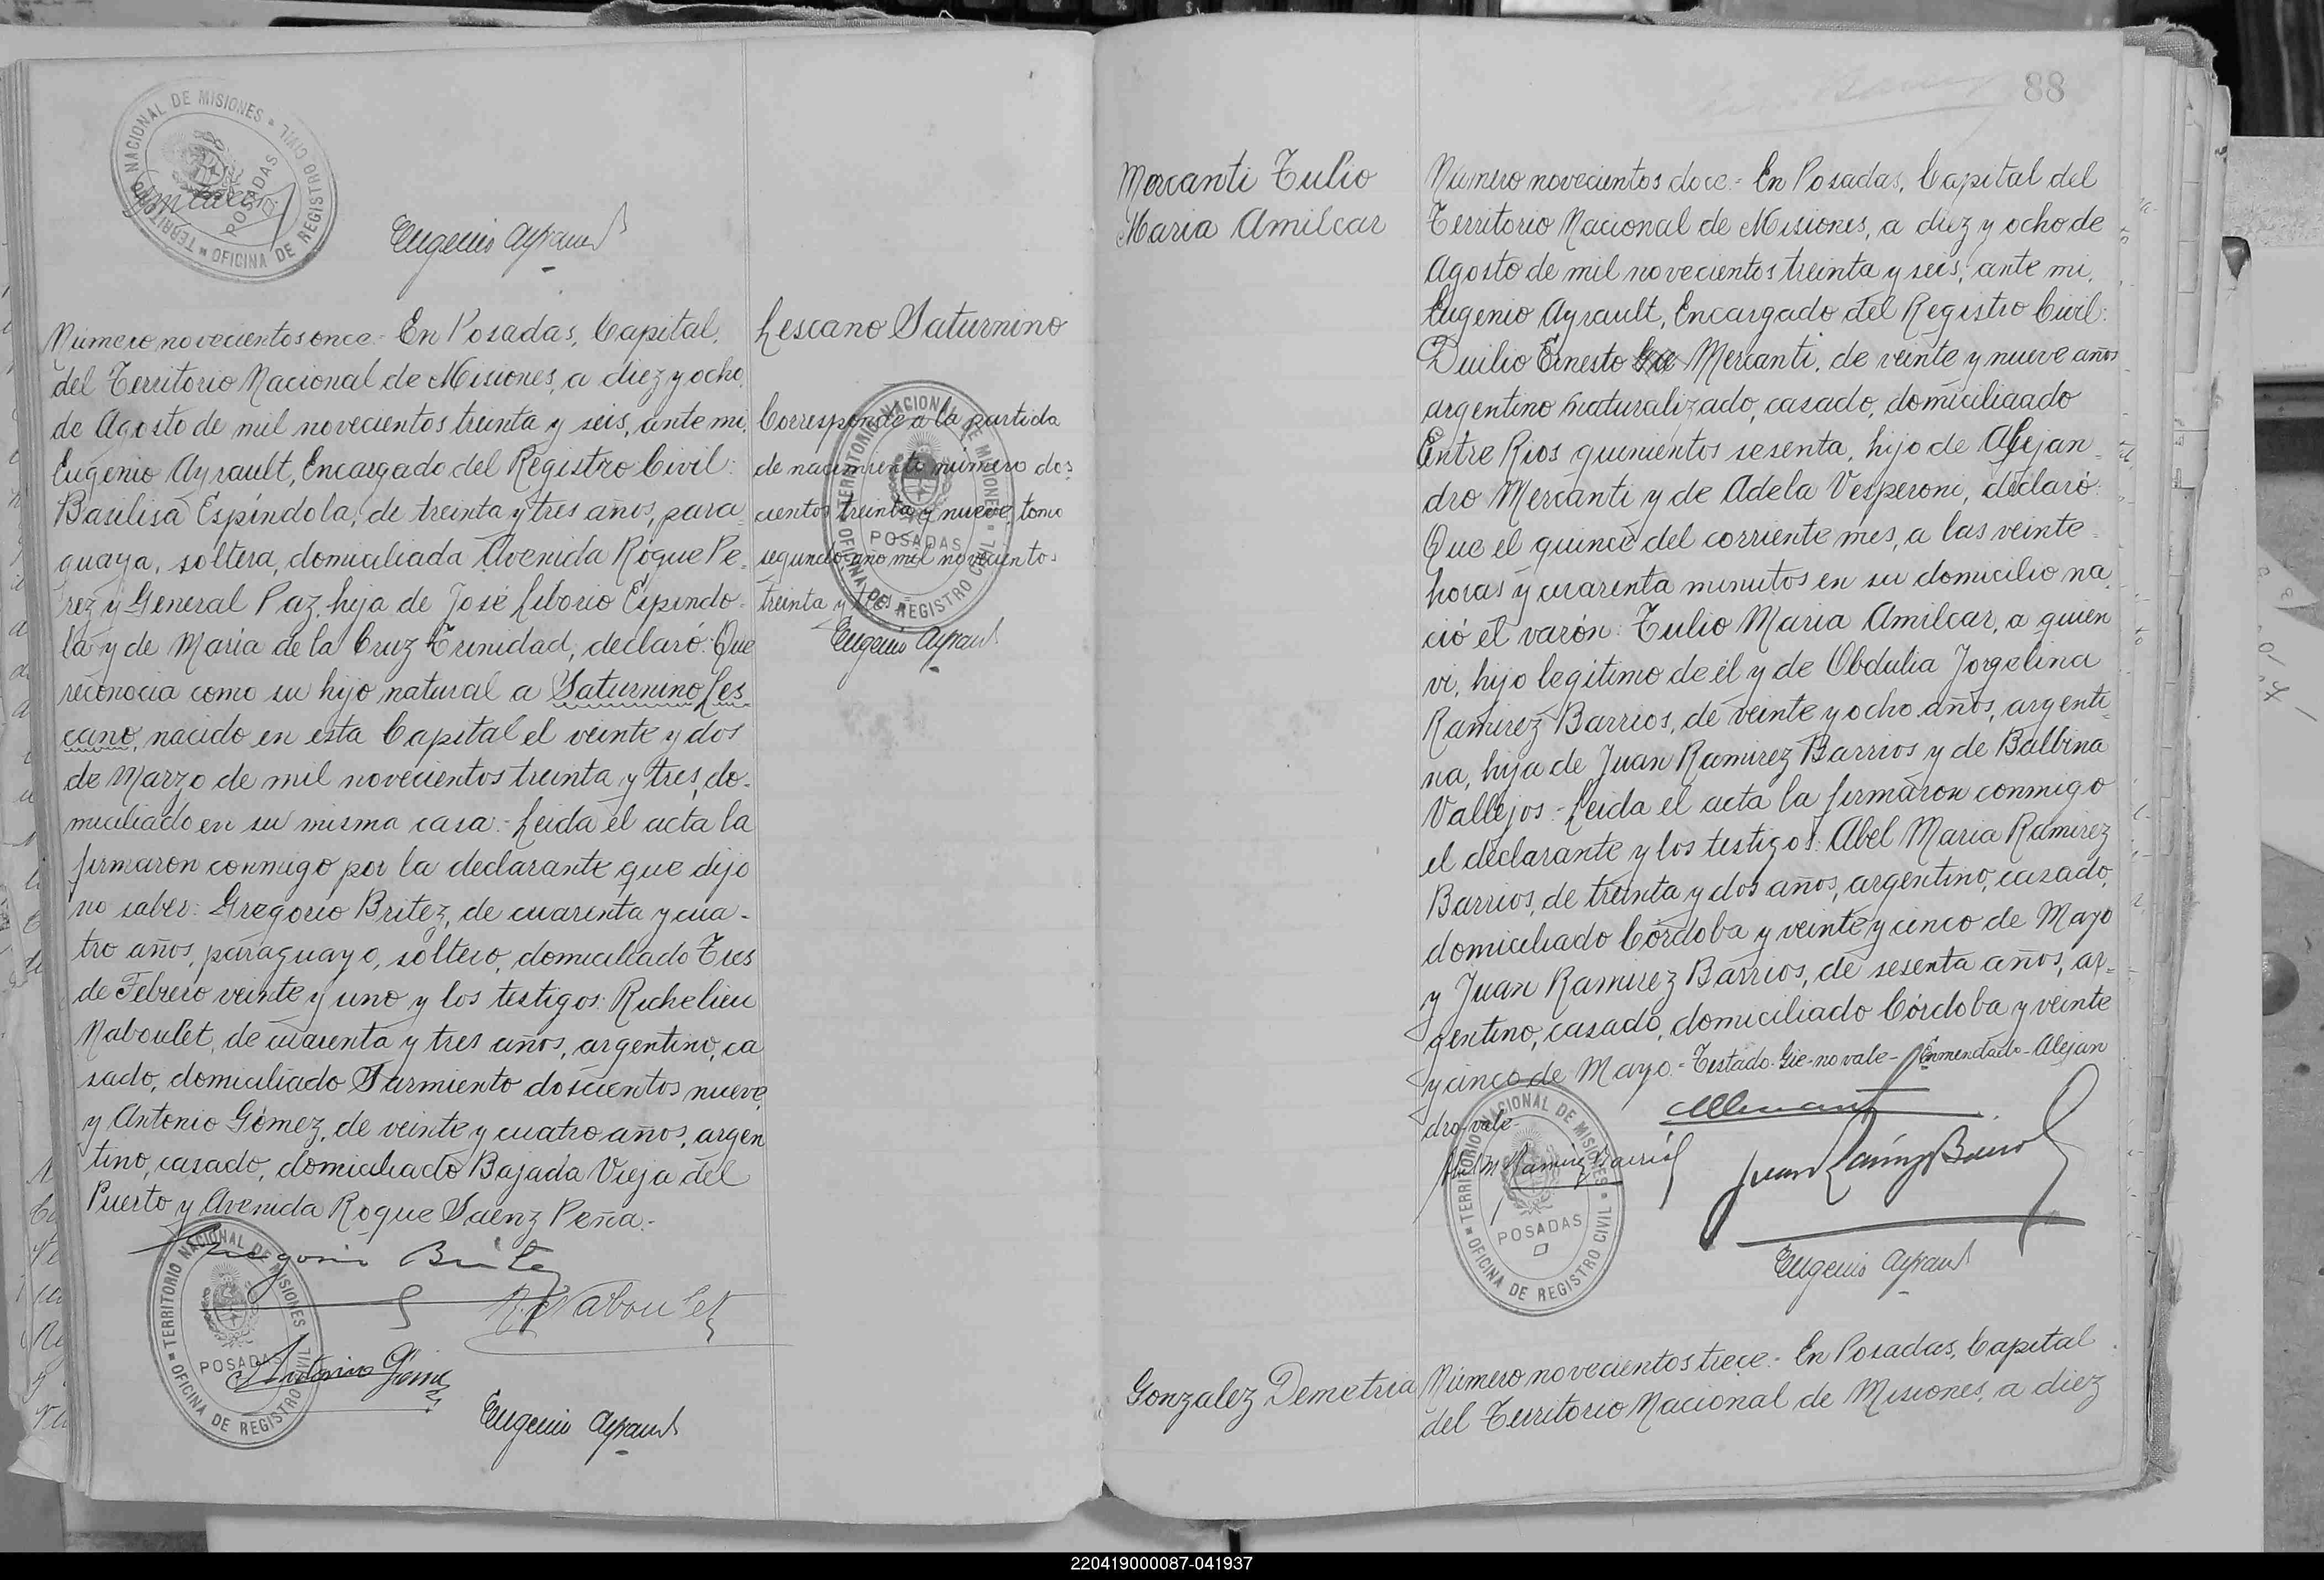 TERRITORIO NACIONAL DE MISIONES
OFICINA DE REGISTRO CIVIL
POSADAS
Eugenio Ayrault
Número novecientos once.- En Posadas, Capital,
del Territorio Nacional de Misiones, a diez y ocho
de Agosto de mil novecientos treinta y seis, ante mi,
Eugenio Ayrault, Encargado del Registro Civil:
Basilisa Espíndola, de treinta y tres años, para-
guaya, soltera, domiciliada Avenida Roque Pe-
rez y General Paz, hija de José Liborio Espíndo-
la y de María de la Cruz Trinidad, declaró: Que
reconocia como su hijo natural a Saturnino Les-
cano, nacido en esta Capital el veinte y dos
de Marzo de mil novecientos treinta y tres, do-
miciliado en su misma casa.- Leida el acta la
firmaron conmigo por la declarante que dijo
no saber: Gregorio Britez, de cuarenta y cua-
tro años, paraguayo, soltero, domiciliado Tres
de Febrero veinte y uno y los testigos: Richelieu
Naboulet, de cuarenta y tres años, argentino, ca
sado, domiciliado Sarmiento doscientos nueve,
y Antonio Gómez, de veinte y cuatro años, argen
tino, casado, domiciliado Bajada Vieja del
Puerto y Avenida Roque Saenz Peña.-
Gregorio Britez
R. Naboulet
Antonio Gómez
Eugenio Ayrault
TERRITORIO NACIONAL DE MISIONES
OFICINA DE REGISTRO CIVIL
POSADAS
Lescano Saturnino
Corresponde a la partida
de nacimiento número dos
cientos treinta y nueve, tomo
segundo, año mil novecientos
treinta y tres.-
Eugenio Ayrault
TERRITORIO NACIONAL DE MISIONES
OFICINA DE REGISTRO CIVIL
POSADAS
88
Mercanti Tulio
Maria Amilcar
Número novecientos doce.- En Posadas, Capital del
Territorio Nacional de Misiones, a diez y ocho de
Agosto de mil novecientos treinta y seis, ante mi,
Eugenio Ayrault, Encargado del Registro Civil:
Duilio Ernesto Mercanti, de veinte y nueve años
argentino naturalizado, casado, domiciliaado
Entre Rios quinientos sesenta, hijo de Alejan-
dro Mercanti y de Adela Vesperoni, declaró:
Que el quince del corriente mes, a las veinte
horas y cuarenta minutos en su domicilio na
ció el varón: Tulio Maria Amilcar, a quien
vi, hijo legitimo de él y de Obdulia Jorgelina
Ramirez Barrios, de veinte y ocho años, argenti-
na, hija de Juan Ramirez Barrios y de Balbina
Vallejos.- Leida el acta la firmaron conmigo
el declarante y los testigos: Abel Maria Ramirez
Barrios, de treinta y dos años, argentino, casado,
domiciliado Córdoba y veinte y cinco de Mayo
y Juan Ramirez Barrios, de sesenta años, ar-
gentino, casado, domiciliado Córdoba y veinte
y cinco de Mayo.- Testado- Gie- no vale- Enmendado- Alejan
dro- vale-
Abel M Ramirez Barrios
Juan Ramirez Barrios
Eugenio Ayrault
TERRITORIO NACIONAL DE MISIONES
OFICINA DE REGISTRO CIVIL
POSADAS
Gonzalez Demetria
Número novecientos trece.- En Posadas, Capital
del Territorio Nacional de Misiones, a diez
220419000087-041937